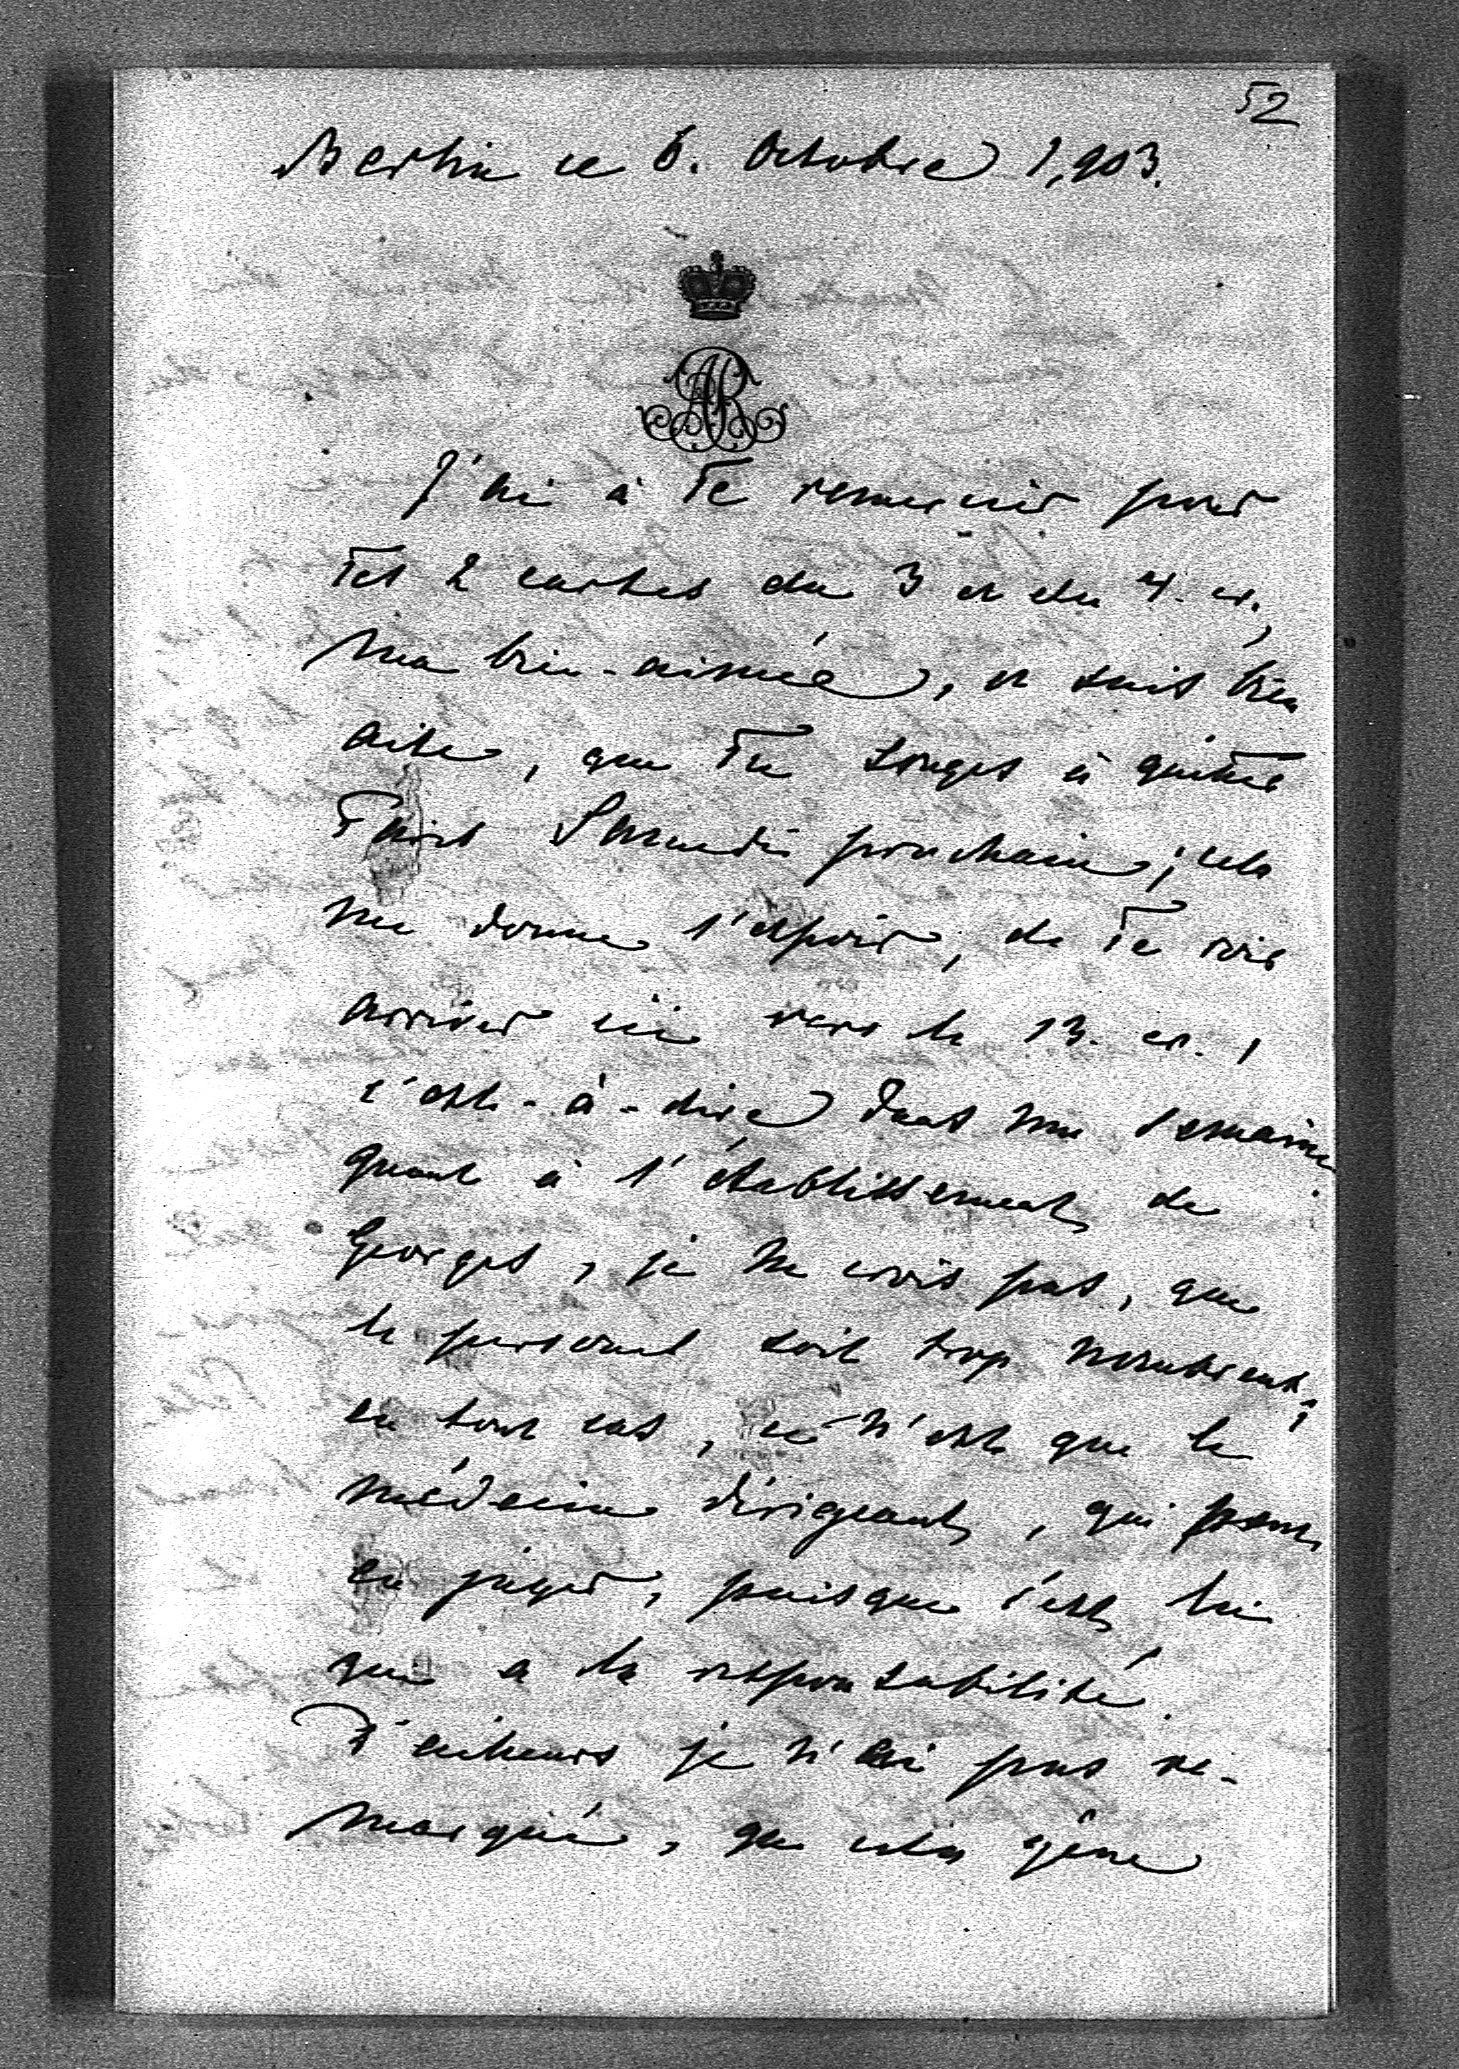 52
Berlin ce 6. Octobre 1,903.
J'ai à Te remercier pour
Tes 2 cartes du 3 et du 4. cr.,
ma bien-aimée, et suis bien
aise, que Tu songes à quitter
Paris Samedi prochain; cela
me donne l'espoir, de Te voir
arriver ici vers le 13. cr.,
c'est-à-dire dans une semaine.
quant à l'établissement de
Georges, je ne crois pas, que
le personnel soit trop nombreux;
en tout cas, ce n'est que le
médecin dirigeant, qui peut
en juger, puisque c'est lui
qui a la responsabilité.
D'ailleurs je n'ai pas re-
marqué, que cela gêne